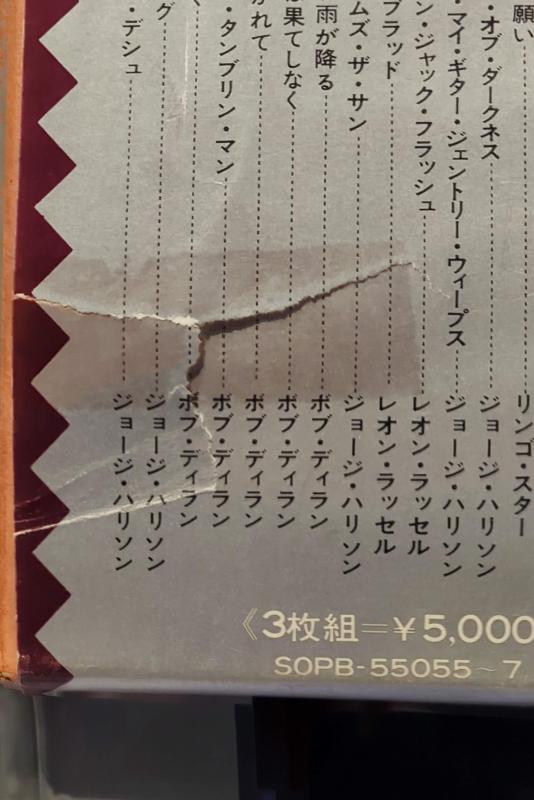 願い リンゴ・スター
・オブ・ダークネス ジョージ・ハリソン
・マイ・ギター・ジェントリー・ウィープス ジョージ・ハリソン
ン・ジャック・フラッシュ レオン・ラッセル
ブラッド レオン・ラッセル
ムズ・ザ・サン ジョージ・ハリソン
雨が降る ボブ・ディラン
果てしなく ボブ・ディラン
れて ボブ・ディラン
・タンブリン・マン ボブ・ディラン
ボブ・ディラン
グ ジョージ・ハリソン
・デシュ ジョージ・ハリソン
《3枚組=¥5,000
SOPB-55055~7